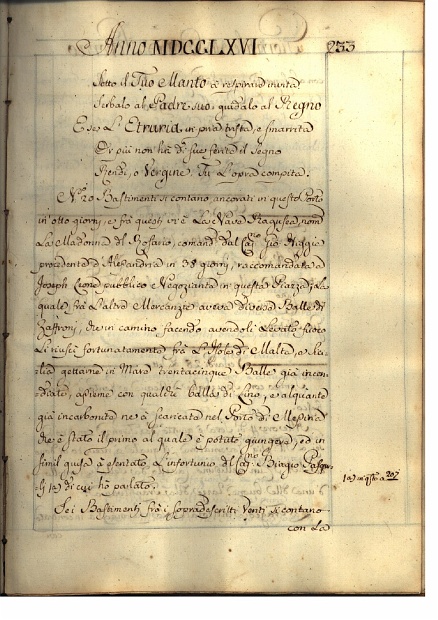 Anno MDCCLXVI
233
Sotto il Tuo Manto à respirar
Serbalo al Padre suo, guidalo al Regno
E se L'Etruria in pria trista, e smarrita
Or più non hà di sue il segno
Rendi, o Vergine, Tu L'opra compita.
N.º 20 Bastimenti si contano ancorati in questo Porto
in otto giorni, e frà questi vi è La Nave Ragusea, nom.
La Madonna del Rosario, comand. dal Cap.no Gio.
procedente d'Alessandria in 38 giorni, raccomandata a
Joseph pubblico Negoziante in questa Piazza, La
quale frà L'altre Mercanzie aveva diverse Balle di
Zaffroni, che in camino facendo avendoli Levato fuoco
Li riuscì fortunatamente frà L'Isole di Malta, e
gettarne in Mare trentacinque Balle già incen-
diate, assieme con qualche balla di Lino, e alquante
già incarbonite ne à scaricate nel Porto di Messina
che è stato il primo al quale è potuto giungere, ed in
simil guisa à esentato L'infortunio del Cap.no Biagio
(a) di cui hò parlato.
(a) in q.sto a 207
Sei Bastimenti frà i sopradescritti Venti si contano
con La